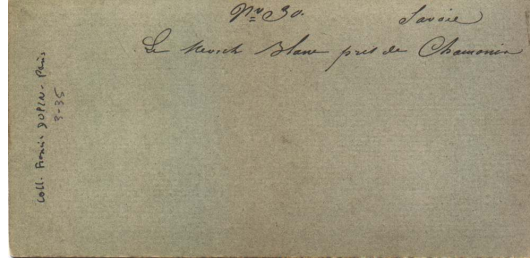 Nr 30. Savoie
Le Blanc près de Chamonix
Coll. Francis DUPIN - Paris
3-35